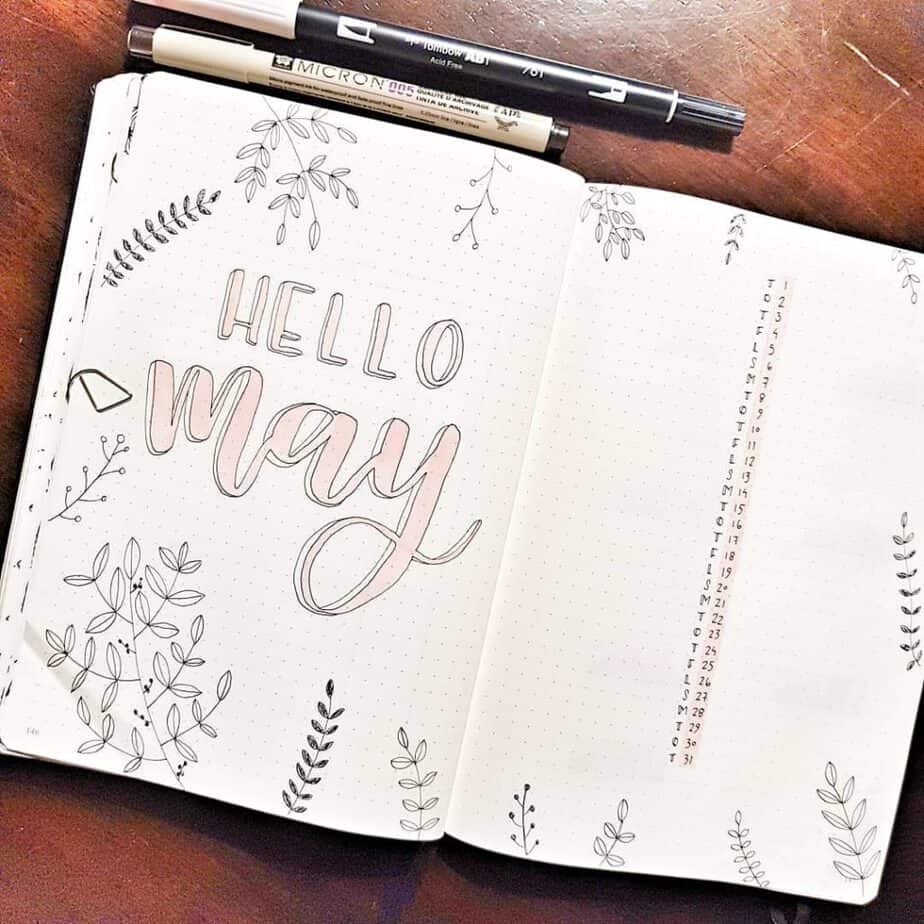 Tombow ABT 761
Acid Free
MICRON 005
QUALITÉ D'ARCHIVAGE
TINTA DE ARCHIVE
HELLO
may
T 1
O 2
T 3
F 4
L 5
S 6
M 7
T 8
O 9
T 10
F 11
L 12
S 13
M 14
T 15
O 16
T 17
F 18
L 19
S 20
M 21
T 22
O 23
T 24
F 25
L 26
S 27
M 28
T 29
O 30
T 31